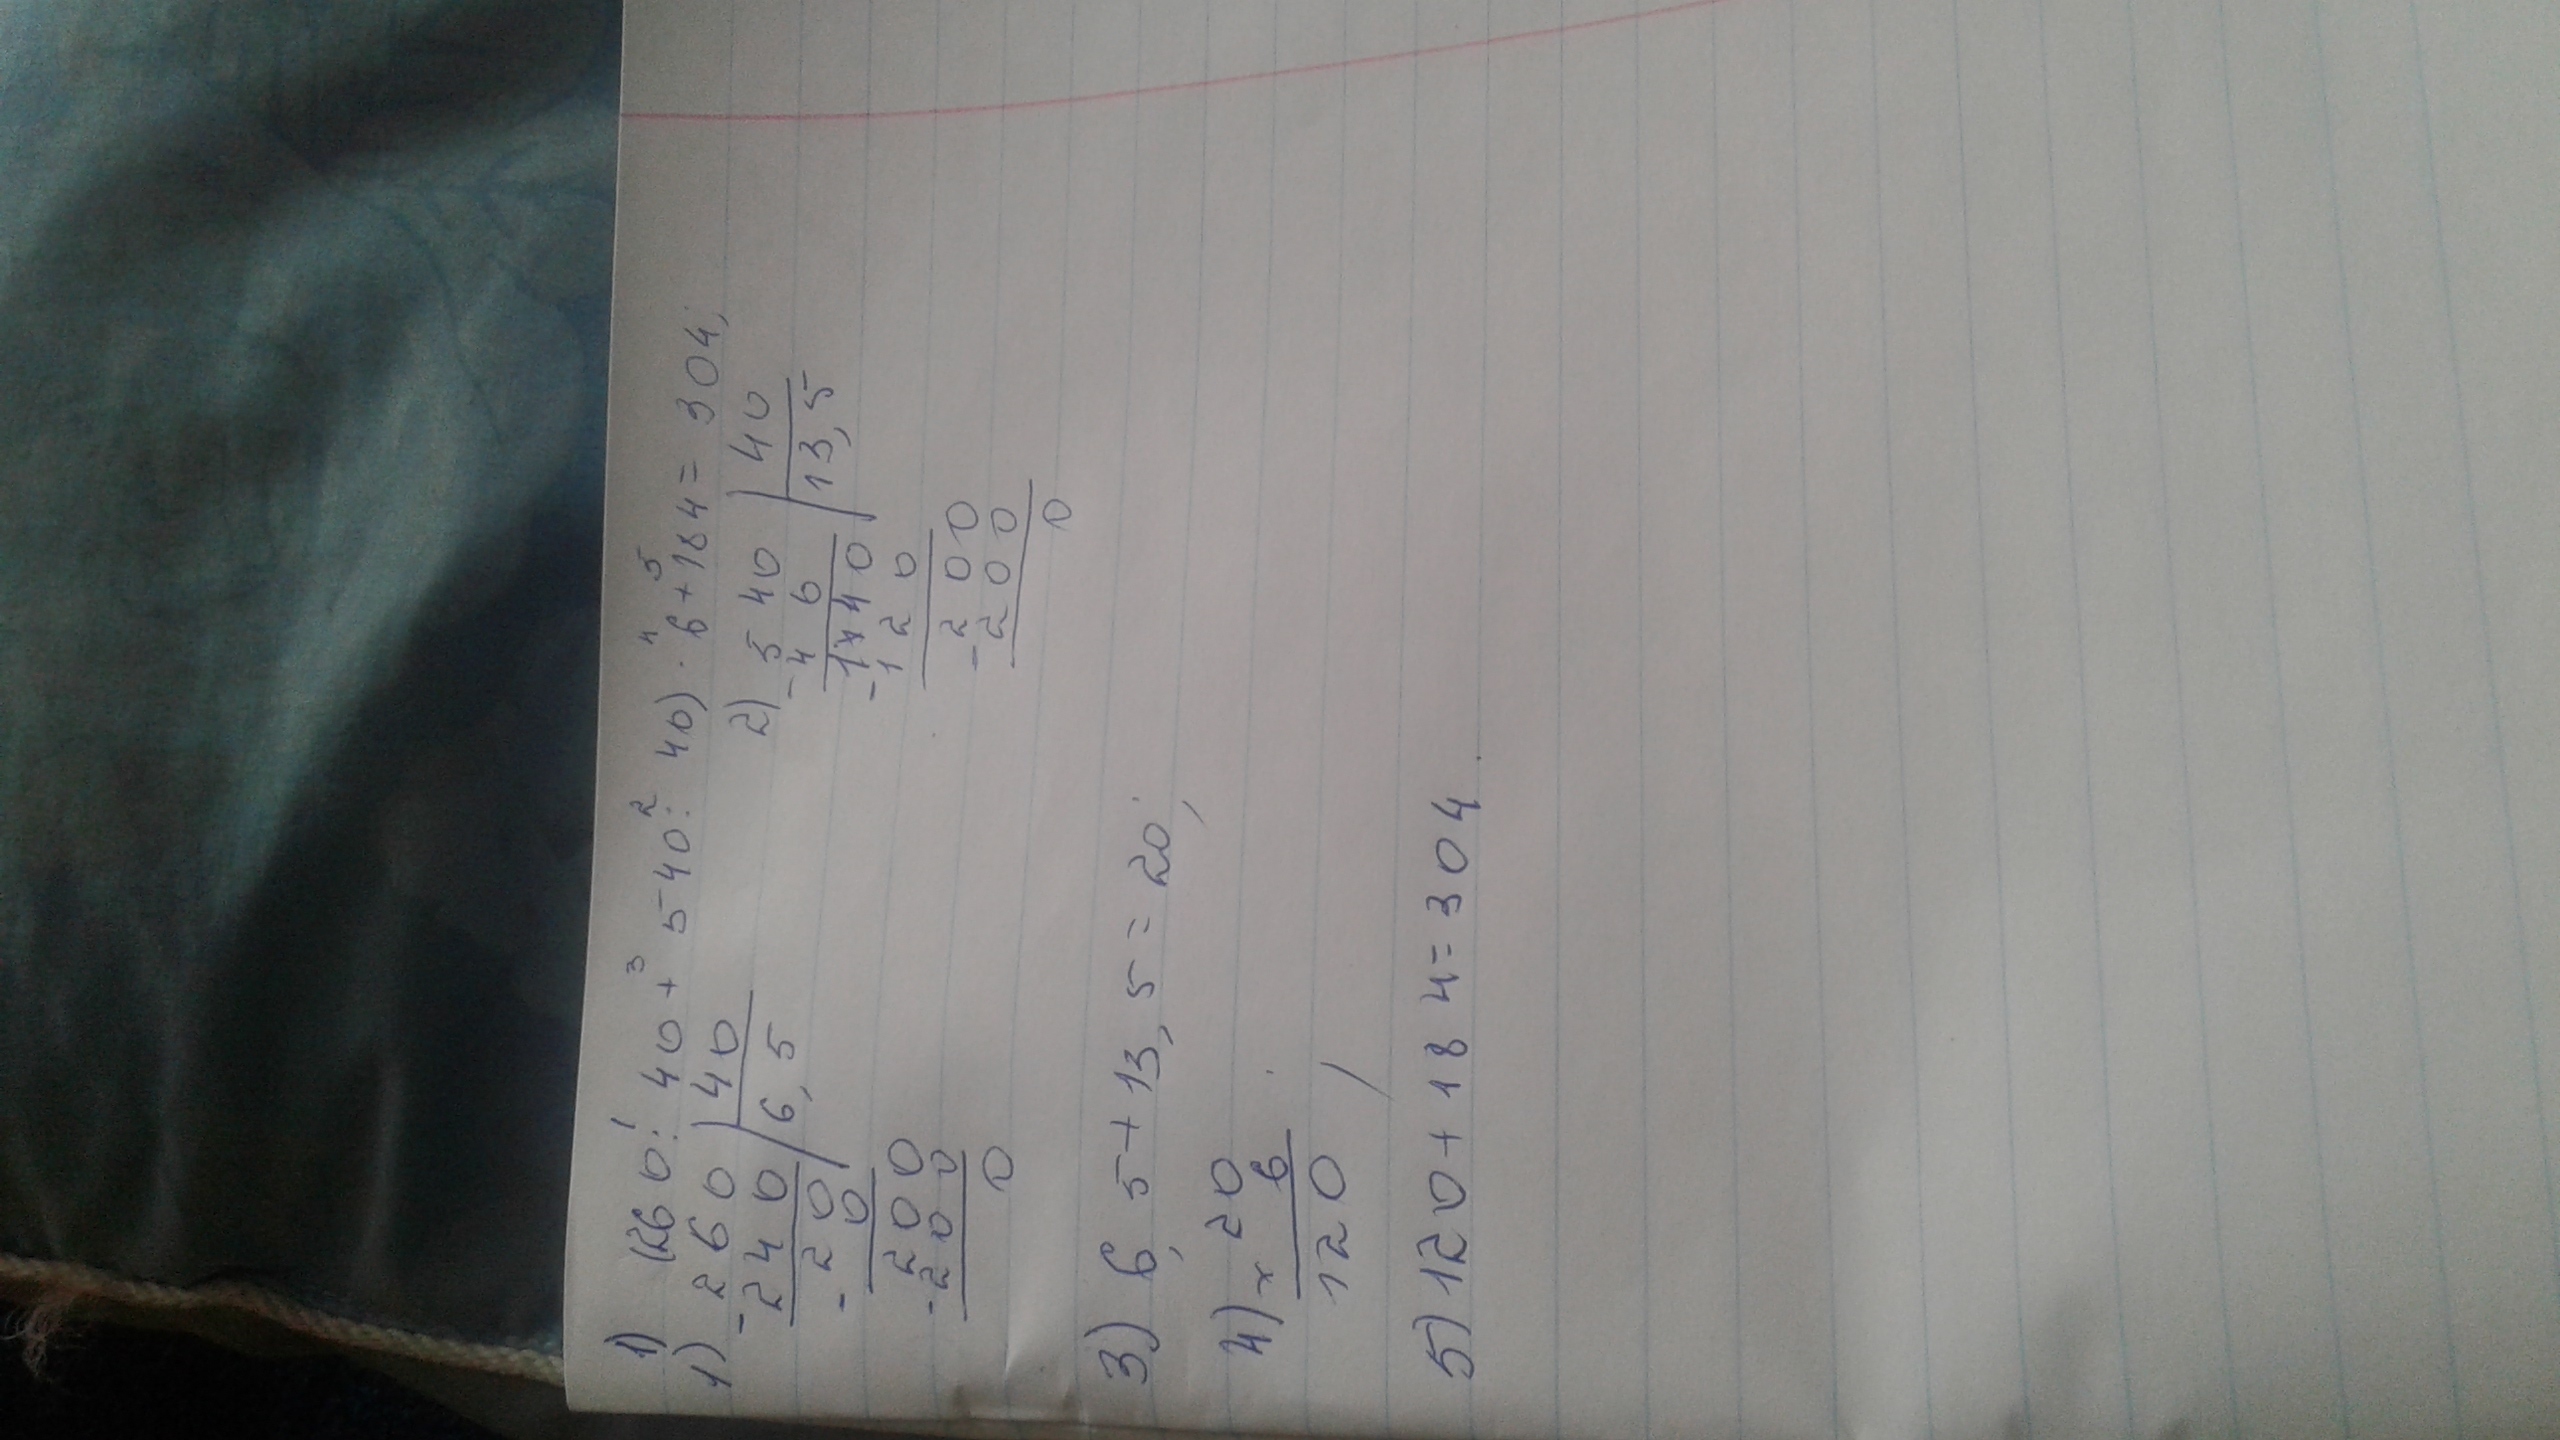 1) (260 : 40 + 540 : 40) · 6 + 184 = 304;
1 3 2 4 5
1) - 260 | 40
240 | 6,5
- 20
0
- 200
200
0
2) - 540 | 40
4 0 | 13,5
- 140
120
- 200
200
0
3) 6,5 + 13,5 = 20;
4) x 20
6
120
5) 120 + 184 = 304